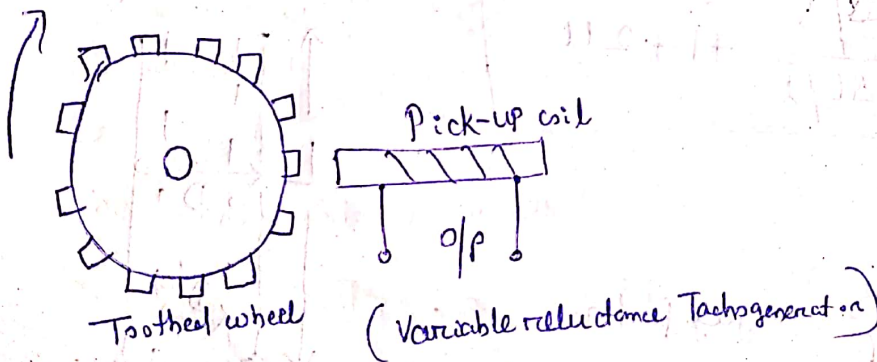 Pick-up coil
O/P
Toothed wheel
(Variable reluctance Tachogenerator)